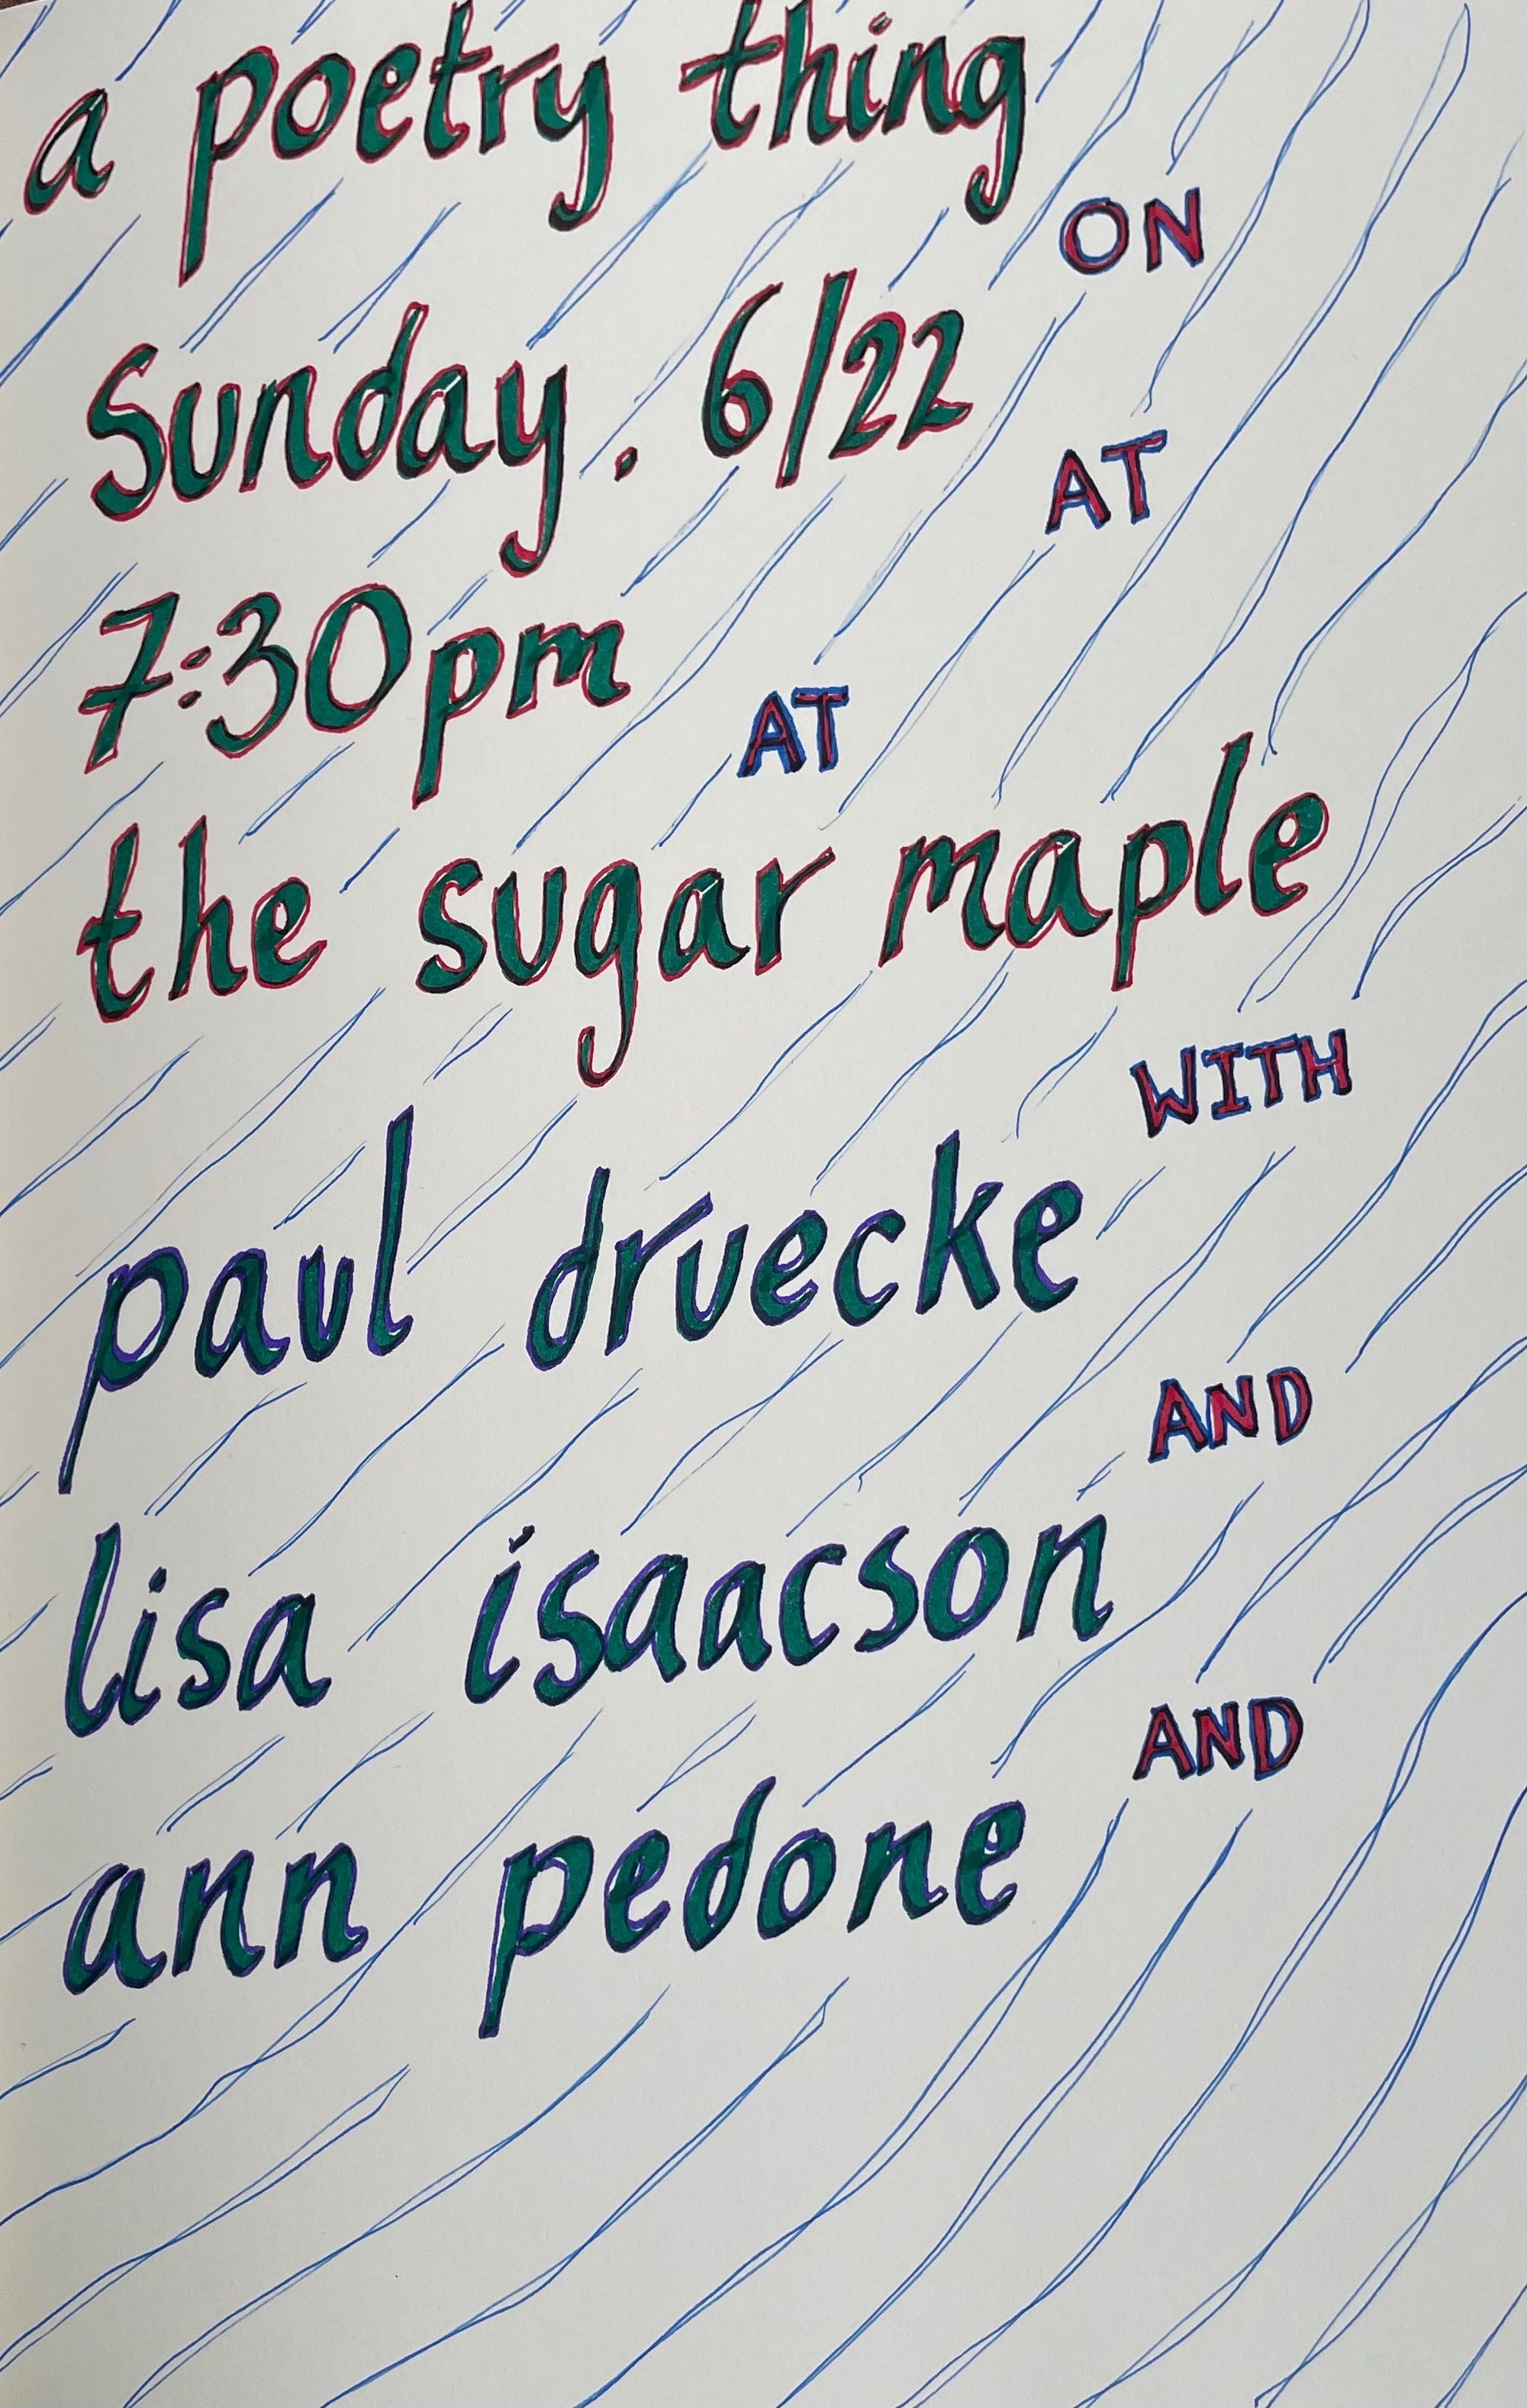 a poetry thing
ON
Sunday. 6/22
AT
7:30pm
AT
the sugar maple
WITH
paul druecke
AND
lisa isaacson
AND
ann pedone